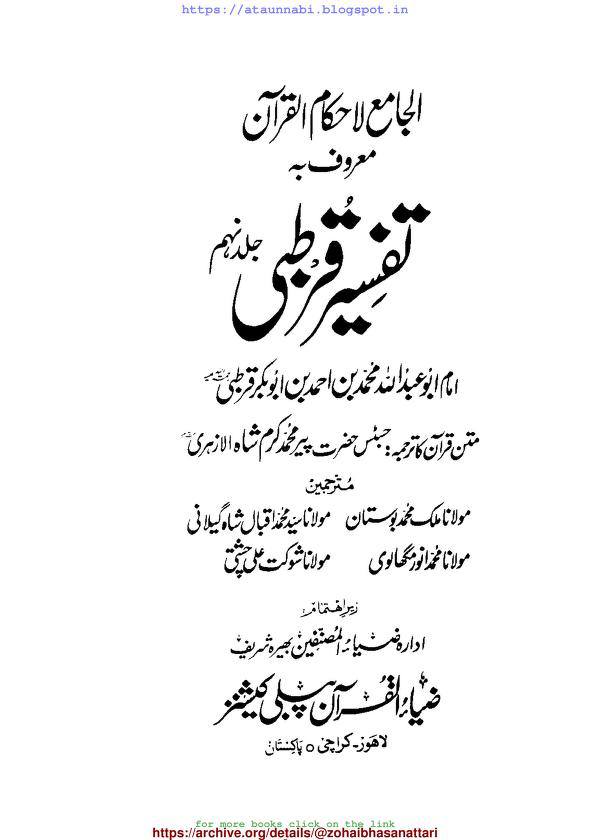 https://ataunnabi.blogspot.in
الجامع لاحکام القرآن
معروف بہ
تفسیر قرطبی جلد نہم
امام ابو عبداللہ محمد بن احمد بن ابوبکر قرطبی
متن قرآن کا ترجمہ: جسٹس حضرت پیر محمد کرم شاہ الازہری
مترجمین
مولانا ملک محمد بوستان مولانا سید محمد اقبال شاہ گیلانی
مولانا محمد انور مگھالوی مولانا شوکت علی چشتی
زیر اہتمام
ادارہ ضیاء المصنفین بھیرہ شریف
ضیاء القرآن پبلی کیشنز
لاہور - کراچی ○ پاکستان
for more books click on the link
https://archive.org/details/@zohaibhasanattari